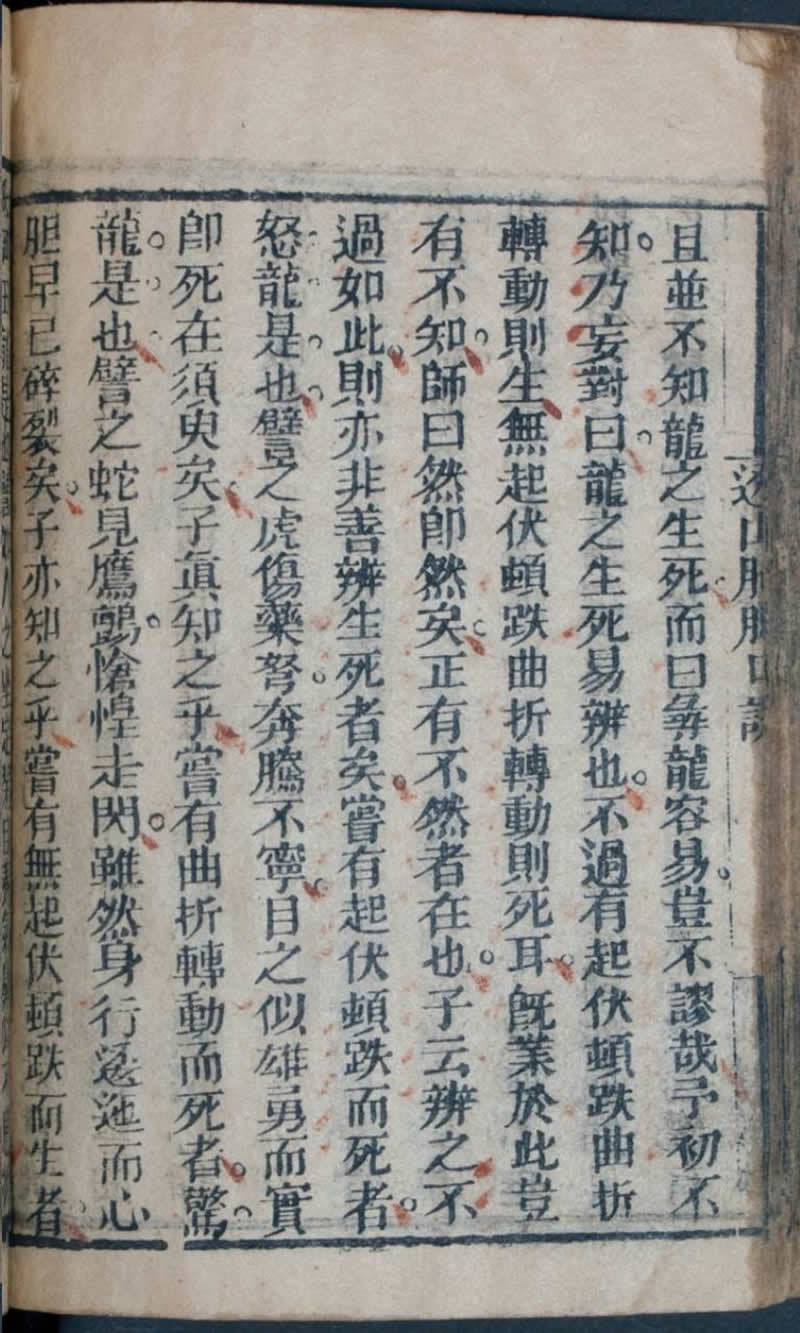 且並不知龍之生死而曰尋龍容易豈不謬哉予初不
知乃妄對曰龍之生死易辨也不過有起伏頓跌曲折
轉動則生無起伏頓跌曲折轉動則死耳旣業於此豈
有不知師曰然卽然矣正有不然者在也子云辨之不
過如此則亦非善辨生死者矣嘗有起伏頓跌而死者
怒龍是也譬之虎傷藥弩奔騰不寧目之似雄勇而實
卽死在須臾矣子眞知之乎嘗有曲折轉動而死者驚
龍是也譬之蛇見鷹鸇愴惶走閃雖然身行逶迤而心
胆早已碎裂矣子亦知之乎嘗有無起伏頓跌而生者